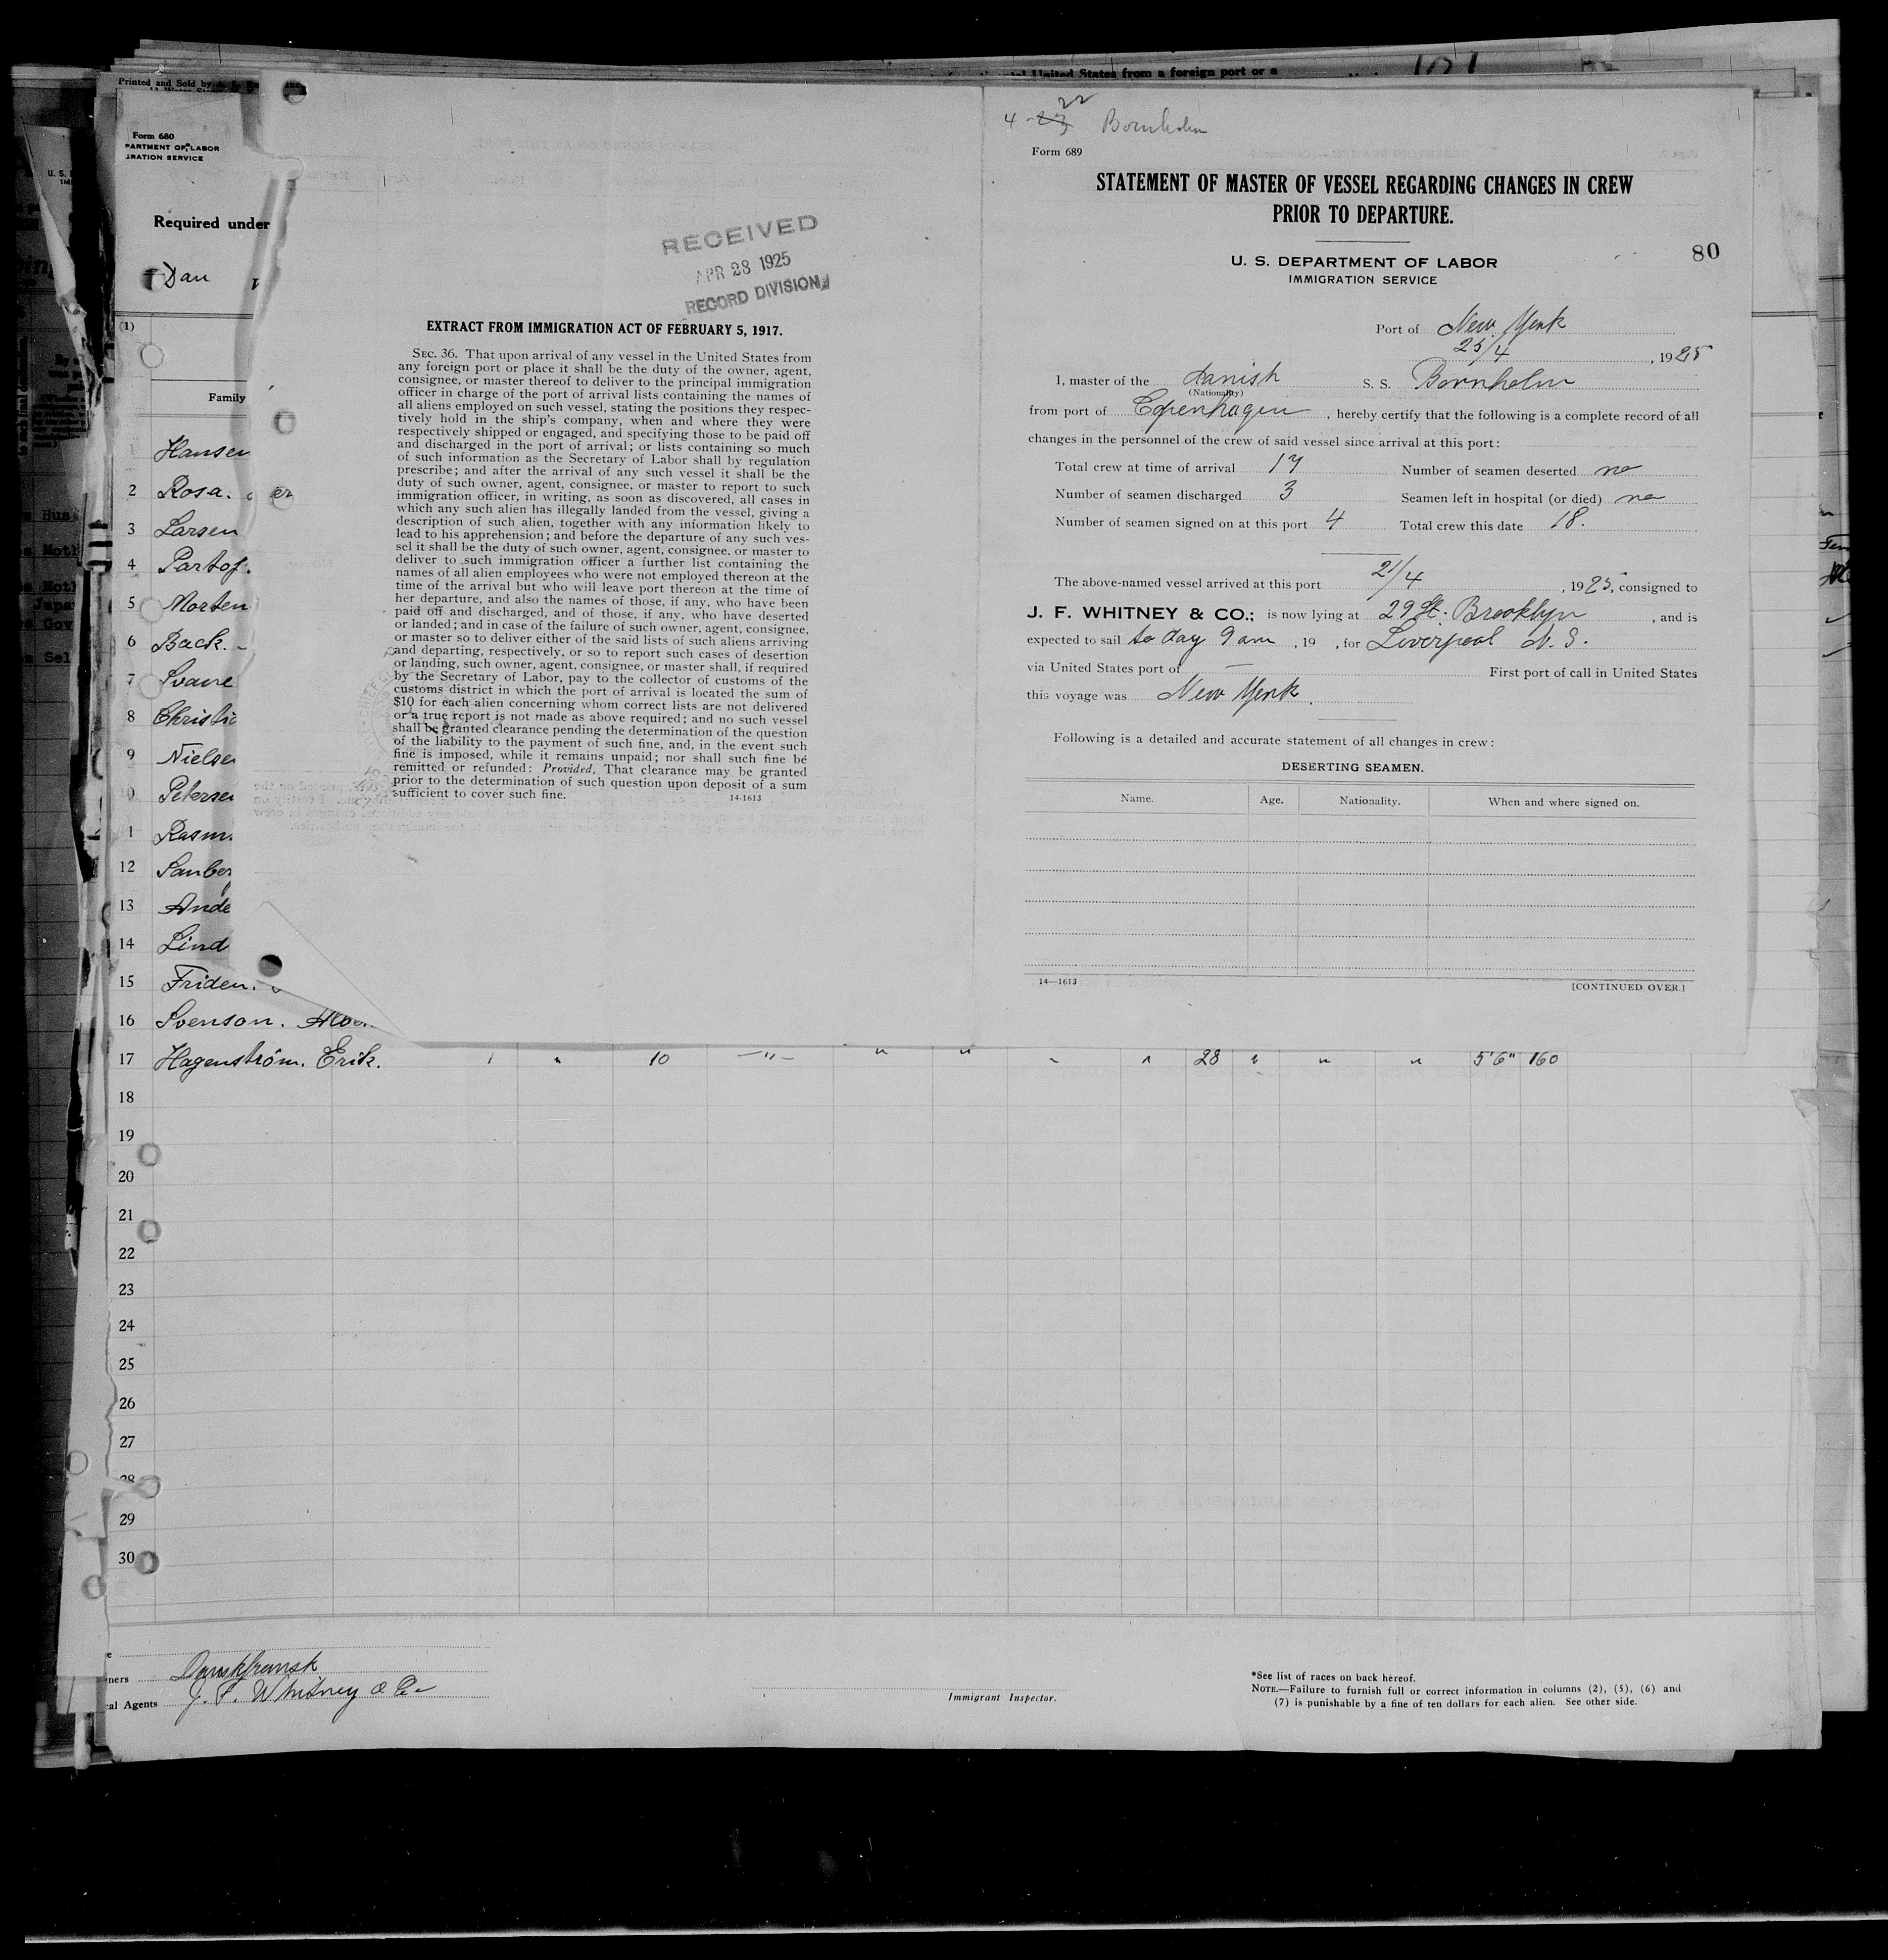 Printed and Sold by
United States from a foreign port or a
Form 680
PARTMENT OF LABOR
GRATION SERVICE
Required under
Dan
(1)
Family
Hansen
2 Rosa.
3 Larsen
4 Partof.
5 Morten
6 Back.
7 Svane
8 Christia
9 Nielse
Peterse
1 Rasm
12 Sanber
13 Ande
14 Lind
15 Friden.
16 Svenson.
17 Hagenström. Erik. 1 " 10 —"— " " " " 28 " " " 5'6" 160
18
19
20
21
22
23
24
25
26
27
28
29
30
ners Danskfransk
al Agents J. F. Whitney & Co
Immigrant Inspector.
*See list of races on back hereof.
NOTE.—Failure to furnish full or correct information in columns (2), (5), (6) and
(7) is punishable by a fine of ten dollars for each alien. See other side.
RECEIVED
APR 28 1925
RECORD DIVISION
EXTRACT FROM IMMIGRATION ACT OF FEBRUARY 5, 1917.
SEC. 36. That upon arrival of any vessel in the United States from
any foreign port or place it shall be the duty of the owner, agent,
consignee, or master thereof to deliver to the principal immigration
officer in charge of the port of arrival lists containing the names of
all aliens employed on such vessel, stating the positions they respec-
tively hold in the ship's company, when and where they were
respectively shipped or engaged, and specifying those to be paid off
and discharged in the port of arrival; or lists containing so much
of such information as the Secretary of Labor shall by regulation
prescribe; and after the arrival of any such vessel it shall be the
duty of such owner, agent, consignee, or master to report to such
immigration officer, in writing, as soon as discovered, all cases in
which any such alien has illegally landed from the vessel, giving a
description of such alien, together with any information likely to
lead to his apprehension; and before the departure of any such ves-
sel it shall be the duty of such owner, agent, consignee, or master to
deliver to such immigration officer a further list containing the
names of all alien employees who were not employed thereon at the
time of the arrival but who will leave port thereon at the time of
her departure, and also the names of those, if any, who have been
paid off and discharged, and of those, if any, who have deserted
or landed; and in case of the failure of such owner, agent, consignee,
or master so to deliver either of the said lists of such aliens arriving
and departing, respectively, or so to report such cases of desertion
or landing, such owner, agent, consignee, or master shall, if required
by the Secretary of Labor, pay to the collector of customs of the
customs district in which the port of arrival is located the sum of
$10 for each alien concerning whom correct lists are not delivered
or a true report is not made as above required; and no such vessel
shall be granted clearance pending the determination of the question
of the liability to the payment of such fine, and, in the event such
fine is imposed, while it remains unpaid; nor shall such fine be
remitted or refunded: Provided, That clearance may be granted
prior to the determination of such question upon deposit of a sum
sufficient to cover such fine. 14-1613
22
4-23 Bornholm
Form 689
STATEMENT OF MASTER OF VESSEL REGARDING CHANGES IN CREW
PRIOR TO DEPARTURE.
80
U. S. DEPARTMENT OF LABOR
IMMIGRATION SERVICE
Port of New York
25/4, 1925
I, master of the Danish S. S. Bornholm
(Nationality)
from port of Copenhagen, hereby certify that the following is a complete record of all
changes in the personnel of the crew of said vessel since arrival at this port:
Total crew at time of arrival 17 Number of seamen deserted no
Number of seamen discharged 3 Seamen left in hospital (or died) no
Number of seamen signed on at this port 4 Total crew this date 18.
The above-named vessel arrived at this port 21/4, 1925, consigned to
J. F. WHITNEY & CO.; is now lying at 29 St. Brooklyn, and is
expected to sail to day 9 am, 19 , for Liverpool N. S.
via United States port of — First port of call in United States
this voyage was New York.
Following is a detailed and accurate statement of all changes in crew:
DESERTING SEAMEN.
Name. Age. Nationality. When and where signed on.
14—1613 [CONTINUED OVER.]